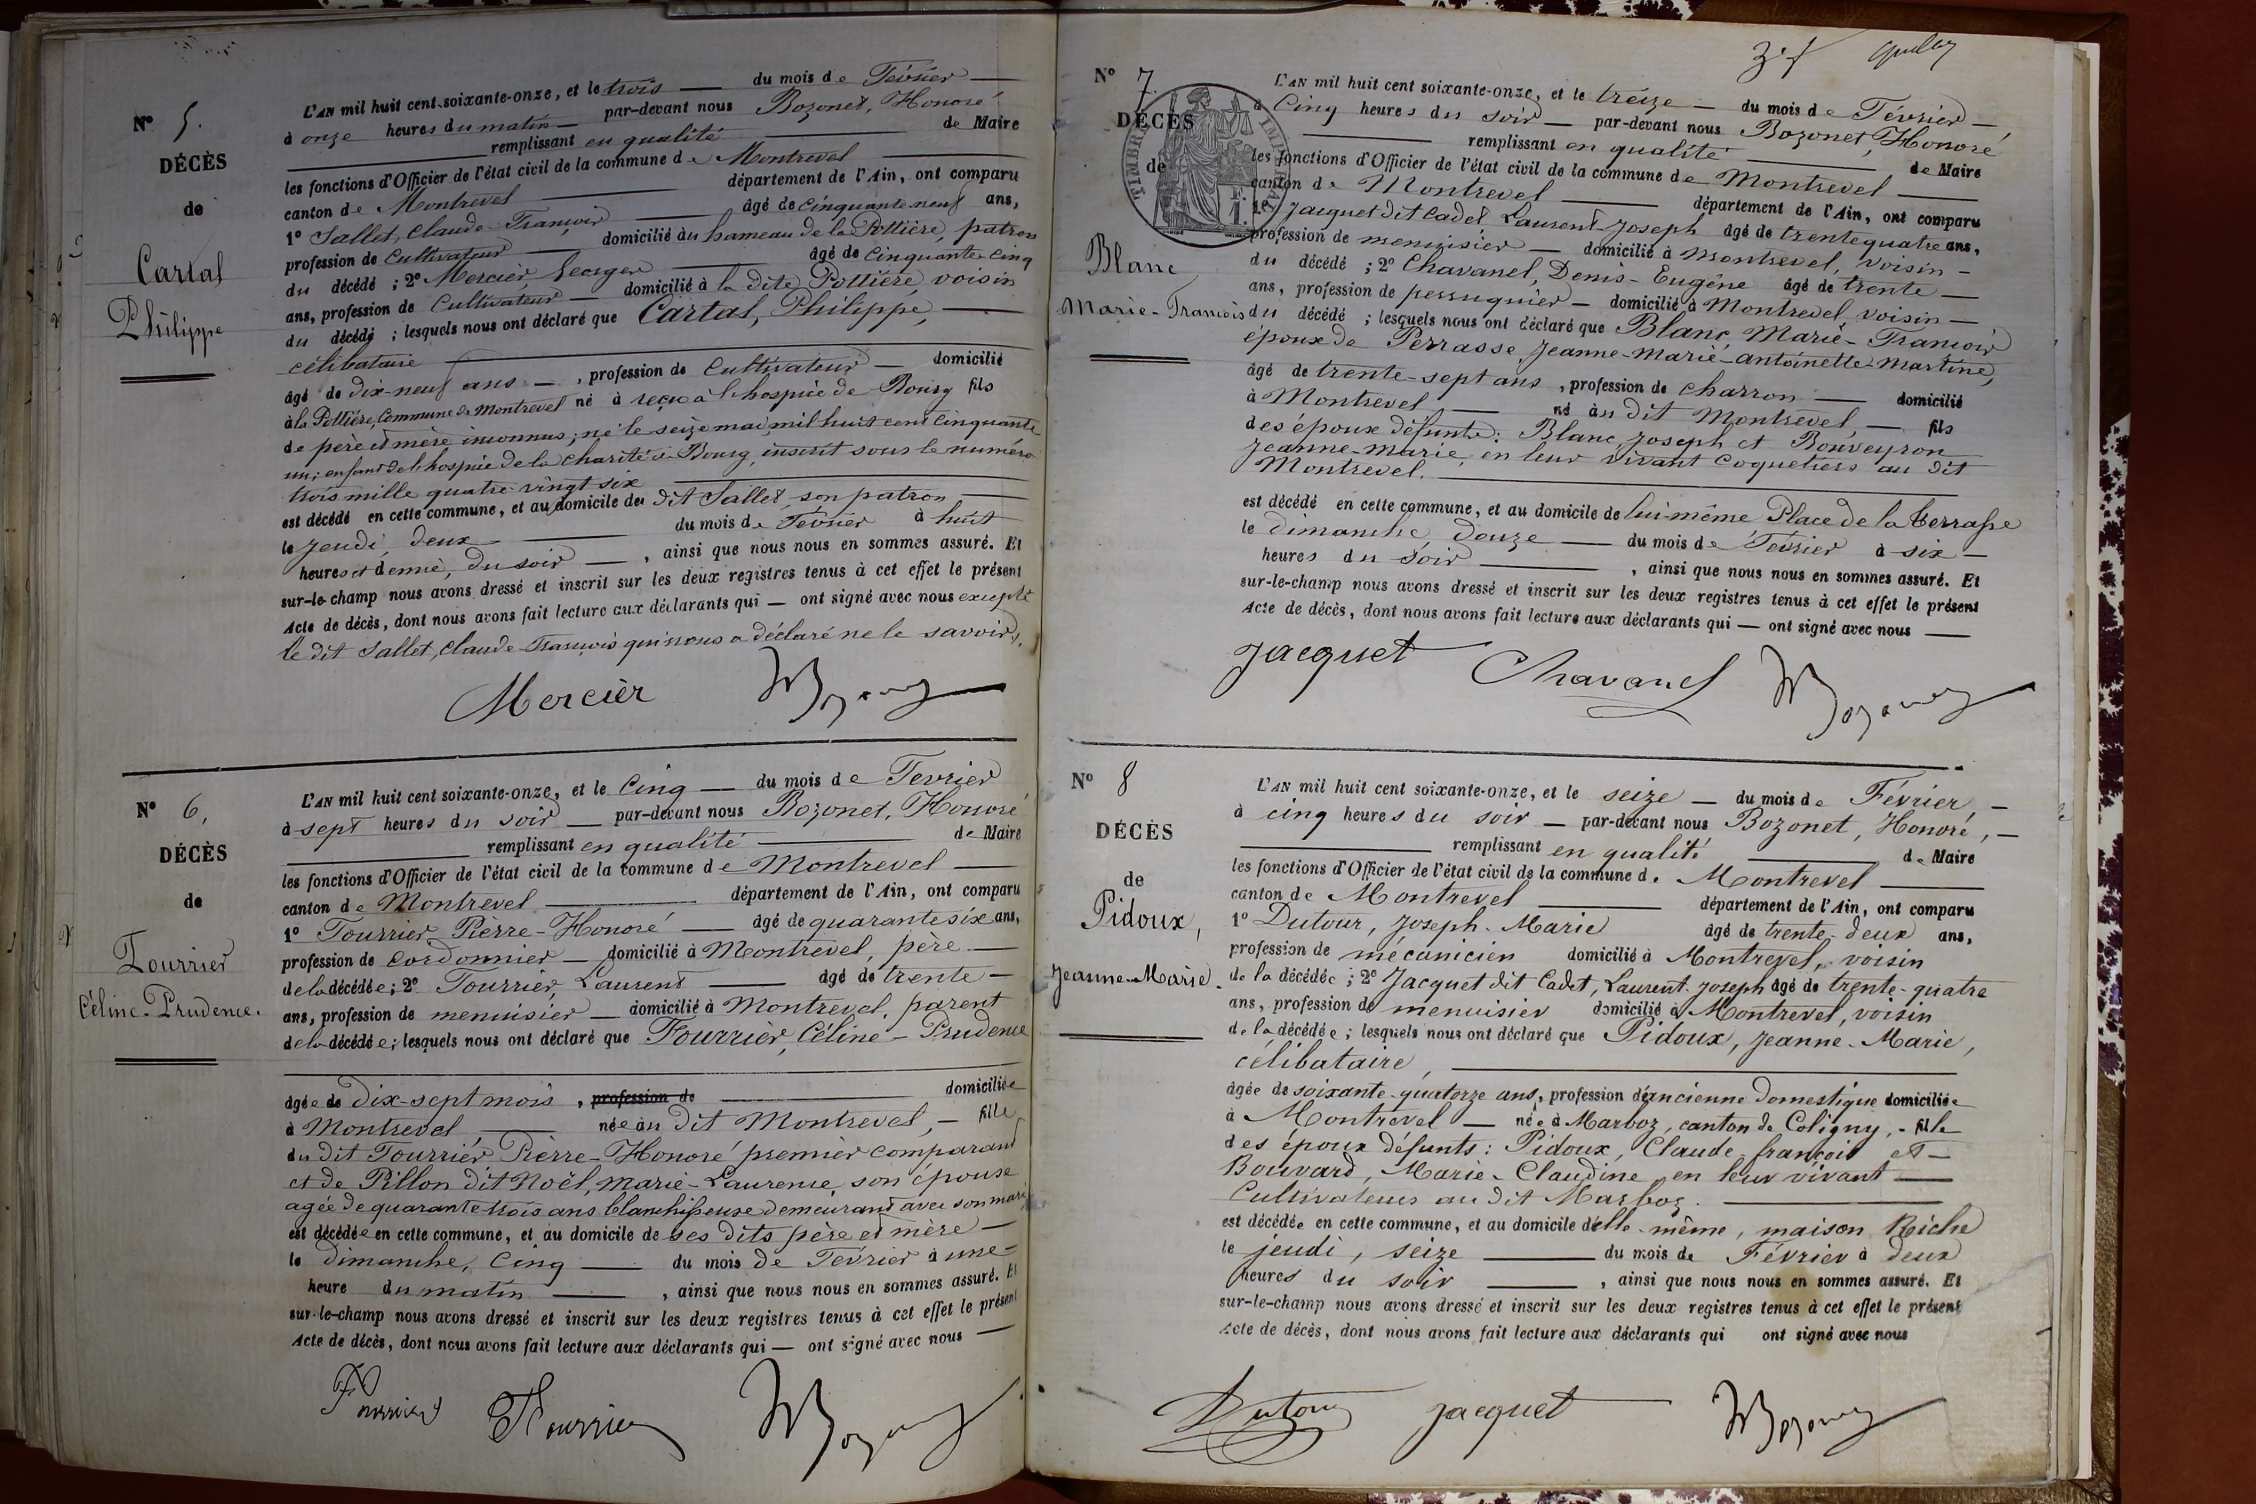 N° 5.
DÉCÈS
de
Cartal
Philippe
L'AN mil huit cent soixante-onze, et le trois — du mois de Février —
à onze heures du matin — par-devant nous Bozonet, Honoré
remplissant en qualité de Maire
les fonctions d'Officier de l'état civil de la commune de Montrevel
canton de Montrevel département de l'Ain, ont comparu
1° Sallet, Claude-François âgé de cinquante neuf ans,
profession de Cultivateur domicilié au hameau de la Pottière, patron
du décédé ; 2° Mercier, Georges âgé de cinquante cinq
ans, profession de Cultivateur — domicilié à la dite Pottière, voisin
du décédé ; lesquels nous ont déclaré que Cartal, Philippe, —
célibataire
âgé de dix-neuf ans —, profession de Cultivateur — domicilié
à la Pottière, Commune de Montrevel né à reçu à l'hospice de Bourg fils
de père et mère inconnus ; né le seize mai, mil huit cent cinquante
un ; enfant de l'hospice de la charité de Bourg, inscrit sous le numéro
trois mille quatre-vingt six
est décédé en cette commune, et au domicile du dit Sallet, son patron
le jeudi, deux du mois de Février à huit
heures et demie, du soir —, ainsi que nous nous en sommes assuré. Et
sur-le-champ nous avons dressé et inscrit sur les deux registres tenus à cet effet le présent
Acte de décès, dont nous avons fait lecture aux déclarants qui — ont signé avec nous excepté
le dit Sallet, Claude-François qui nous a déclaré ne le savoir.
Mercier Bozonet
N° 6.
DÉCÈS
de
Fourrier
Céline-Prudence.
L'AN mil huit cent soixante-onze, et le cinq — du mois de Fevrier
à sept heures du soir — par-devant nous Bozonet, Honoré
remplissant en qualité de Maire
les fonctions d'Officier de l'état civil de la commune de Montrevel
canton de Montrevel département de l'Ain, ont comparu
1° Fourrier, Pierre-Honoré — âgé de quarante six ans,
profession de cordonnier — domicilié à Montrevel, père —
de la décédée ; 2° Fourrier, Laurent — âgé de trente —
ans, profession de menuisier — domicilié à Montrevel, parent
de la décédée ; lesquels nous ont déclaré que Fourrier, Céline-Prudence
âgée de dix-sept mois, profession de domiciliée
à Montrevel, née au dit Montrevel, — fille
du dit Fourrier Pierre-Honoré premier comparant
et de Pillon dit Noël, Marie-Laurence, son épouse
agée de quarante trois ans blanchisseuse demeurant avec son mari
est décédée en cette commune, et au domicile de ses dits père et mère —
le dimanche, cinq — du mois de Février à une
heure du matin —, ainsi que nous nous en sommes assuré. Et
sur-le-champ nous avons dressé et inscrit sur les deux registres tenus à cet effet le présent
Acte de décès, dont nous avons fait lecture aux déclarants qui — ont signé avec nous —
Fourrier Fourrier Bozonet
N° 7.
DÉCÈS
de
Blanc
Marie-François
TIMBRE IMPERIAL
L'AN mil huit cent soixante-onze, et le treize — du mois de Février —
à cinq heures du soir — par-devant nous Bozonet, Honoré
remplissant en qualité de Maire
les fonctions d'Officier de l'état civil de la commune de Montrevel
canton de Montrevel département de l'Ain, ont comparu
1° Jacquet dit Cadet, Laurent-Joseph âgé de trente quatre ans,
profession de menuisier — domicilié à Montrevel, voisin —
du décédé ; 2° Chavanel, Denis-Eugène âgé de trente —
ans, profession de perruquier — domicilié à Montrevel, voisin —
du décédé ; lesquels nous ont déclaré que Blanc, Marie-François
époux de Perrasse Jeanne-Marie-Antoinette-Martine,
âgé de trente-sept ans, profession de charron — domicilié
à Montrevel — né au dit Montrevel, — fils
des époux défunts : Blanc, Joseph et Bouveyron
Jeanne-Marie, en leur vivant coquetiers au dit
Montrevel.
est décédé en cette commune, et au domicile de lui-même Place de la terrasse
le dimanche, douze — du mois de Février à six —
heures du soir —, ainsi que nous nous en sommes assuré. Et
sur-le-champ nous avons dressé et inscrit sur les deux registres tenus à cet effet le présent
Acte de décès, dont nous avons fait lecture aux déclarants qui — ont signé avec nous —
Jacquet Chavanel Bozonet
N° 8
DÉCÈS
de
Pidoux,
Jeanne-Marie.
L'AN mil huit cent soixante-onze, et le seize — du mois de Février, —
à cinq heures du soir — par-devant nous Bozonet, Honoré, —
remplissant en qualité de Maire
les fonctions d'Officier de l'état civil de la commune de Montrevel
canton de Montrevel département de l'Ain, ont comparu
1° Dutour, Joseph-Marie âgé de trente-deux ans,
profession de mécanicien domicilié à Montrevel, voisin
de la décédée ; 2° Jacquet dit Cadet, Laurent-Joseph âgé de trente-quatre
ans, profession de menuisier domicilié à Montrevel, voisin
de la décédée ; lesquels nous ont déclaré que Pidoux, Jeanne-Marie,
célibataire,
âgée de soixante-quatorze ans, profession d'ancienne domestique domiciliée
à Montrevel — née à Marboz, canton de Coligny, - fille
des époux défunts : Pidoux, Claude françois et —
Bouvard, Marie-Claudine, en leur vivant —
Cultivateurs au dit Marboz.
est décédée en cette commune, et au domicile d'elle-même, maison Riche
le jeudi, seize — du mois de Février à deux
heures du soir —, ainsi que nous nous en sommes assuré. Et
sur-le-champ nous avons dressé et inscrit sur les deux registres tenus à cet effet le présent
Acte de décès, dont nous avons fait lecture aux déclarants qui ont signé avec nous
Dutour Jacquet Bozonet